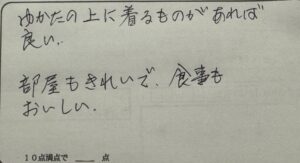 ゆかたの上に着るものがあれば
良い.
部屋もきれいで、食事も
おいしい.
10点満点で ___ 点